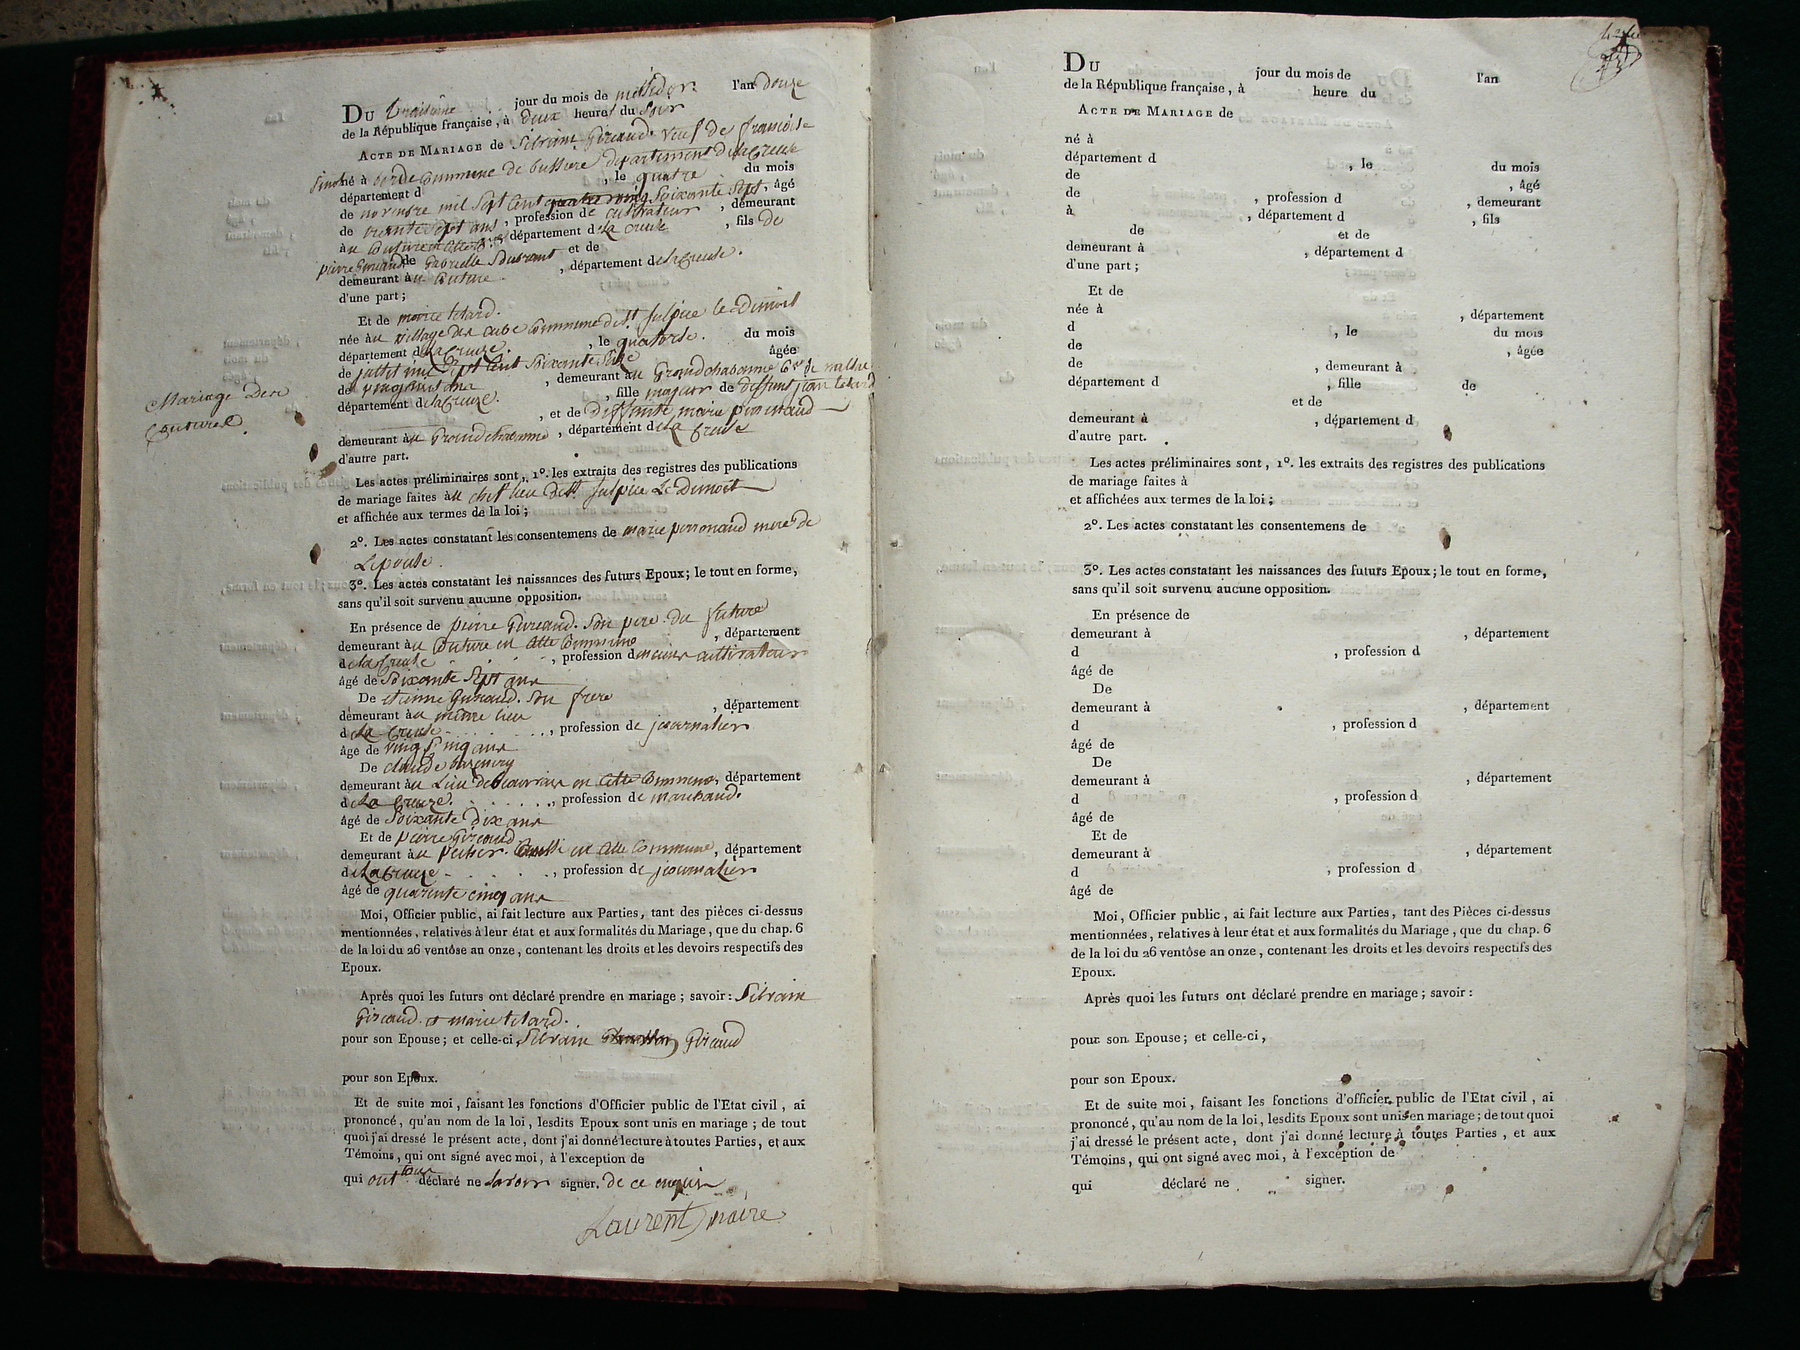 Du troisième jour du mois de messidor l'an douze
de la République française, à deux heures du soir
Acte de Mariage de Silvain Giraud veuf de françoise
né à commune de bussiere département de la Creuse
département d , le quatre du mois
de novembre mil sept cent soixante sept, âgé
de trente sept ans, profession de cultivateur, demeurant
à département de la creuse, fils de
pierre Giraud et de Gabrielle Durant
demeurant au , département de la Creuse.
d'une part;
Et de marie tetard.
née au village commune de st sulpice le Dunois
département de la Creuze. , le quatorse. du mois
de juillet mil sept cent soixante âgée
de ans , demeurant au Grand
département de la Creuze. , fille majeur de deffunt jean tetard
, et de marie
demeurant au Grand , département de la Creuse
d'autre part.
Mariage
Les actes préliminaires sont, 1°. les extraits des registres des publications
de mariage faites au chef lieu de st sulpice Le Dunois
et affichée aux termes de la loi;
2°. Les actes constatant les consentemens de marie mere de
L'epouse.
3°. Les actes constatant les naissances des futurs Epoux; le tout en forme,
sans qu'il soit survenu aucune opposition.
En présence de pierre Giraud. son pere du future
demeurant au en cette Commune , département
de la Creuse , profession d cultivateur
âgé de Soixante Sept ans
De etienne Giraud. son frere
demeurant au même lieu , département
de La Creuse . . . . , profession de journalier
âgé de vingt cinq ans
De claude
demeurant au Lieu de en cette Commune, département
de La Creuze. . . . . . , profession de marchand.
âgé de Soixante Dix ans
Et de pierre Giraud
demeurant au en cette Commune, département
de La Creuze . . . . , profession de journalier
âgé de quarente cinq ans
Moi, Officier public, ai fait lecture aux Parties, tant des pièces ci-dessus
mentionnées, relatives à leur état et aux formalités du Mariage, que du chap. 6
de la loi du 26 ventôse an onze, contenant les droits et les devoirs respectifs des
Epoux.
Après quoi les futurs ont déclaré prendre en mariage; savoir: Silvain
Giraud et marie tetard.
pour son Epouse; et celle-ci, Silvain Giraud
pour son Epoux.
Et de suite moi, faisant les fonctions d'Officier public de l'Etat civil, ai
prononcé, qu'au nom de la loi, lesdits Epoux sont unis en mariage; de tout
quoi j'ai dressé le présent acte, dont j'ai donné lecture à toutes Parties, et aux
Témoins, qui ont signé avec moi, à l'exception de
qui ont tous déclaré ne savoir signer. de ce enquis
Laurent maire
Du jour du mois de l'an
de la République française, à heure du
Acte de Mariage de
né à
département d , le du mois
de , âgé
de , profession d , demeurant
à , département d , fils
de et de
demeurant à , département d
d'une part;
Et de
née à , département
d , le du mois
de , âgée
de , demeurant à
département d , fille de
et de
demeurant à , département d
d'autre part.
Les actes préliminaires sont, 1°. les extraits des registres des publications
de mariage faites à
et affichées aux termes de la loi;
2°. Les actes constatant les consentemens de
3°. Les actes constatant les naissances des futurs Epoux; le tout en forme,
sans qu'il soit survenu aucune opposition.
En présence de
demeurant à , département
d , profession d
âgé de
De
demeurant à , département
d , profession d
âgé de
De
demeurant à , département
d , profession d
âgé de
Et de
demeurant à , département
d , profession d
âgé de
Moi, Officier public, ai fait lecture aux Parties, tant des Pièces ci-dessus
mentionnées, relatives à leur état et aux formalités du Mariage, que du chap. 6
de la loi du 26 ventôse an onze, contenant les droits et les devoirs respectifs des
Epoux.
Après quoi les futurs ont déclaré prendre en mariage; savoir:
pour son Epouse; et celle-ci,
pour son Epoux.
Et de suite moi, faisant les fonctions d'officier public de l'Etat civil, ai
prononcé, qu'au nom de la loi, lesdits Epoux sont unis en mariage; de tout quoi
j'ai dressé le présent acte, dont j'ai donné lecture à toutes Parties, et aux
Témoins, qui ont signé avec moi, à l'exception de
qui déclaré ne signer.